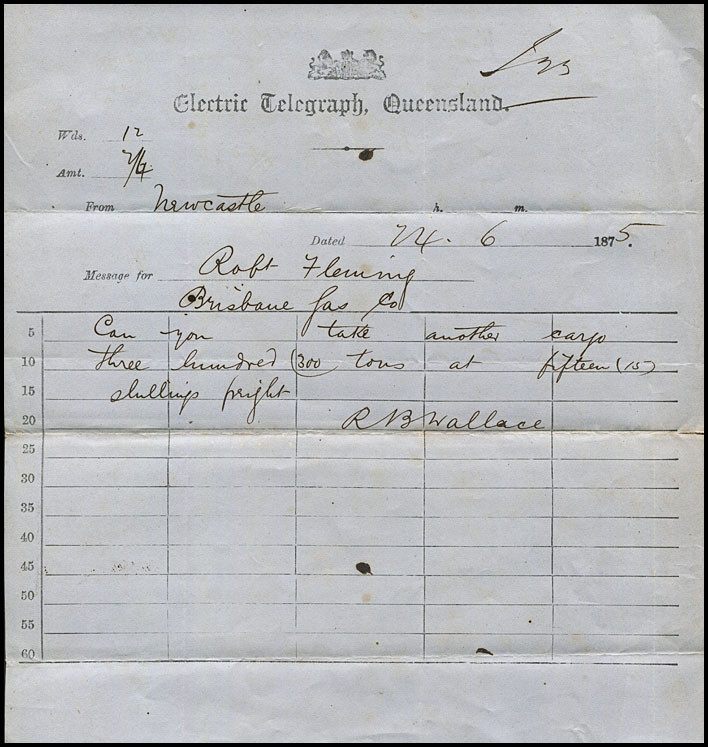 Electric Telegraph, Queensland.
Wds. 12
Amt.
From Newcastle h. m.
Dated 24. 6 1875.
Message for Robt Fleming
Brisbane Gas Co
5 Can you take another cargo
10 three hundred (300 tons at fifteen (15)
15 shillings freight
20 R B Wallace
25
30
35
40
45
50
55
60